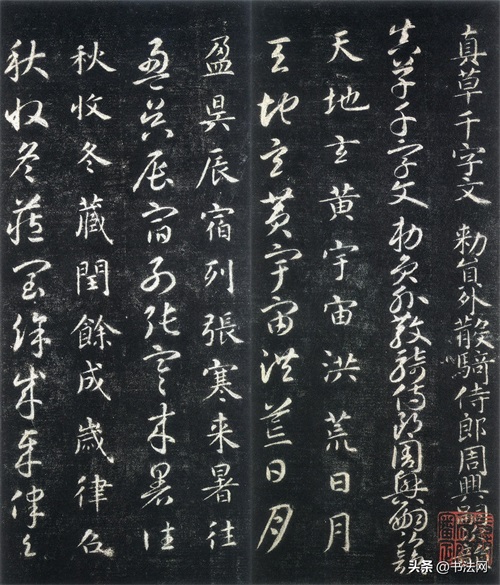 真草千字文 勅員外散騎侍郎周興嗣次韻
真草千字文 勅員外散騎侍郎周興嗣次韻
天地玄黄宇宙洪荒日月
天地玄黄宇宙洪荒日月
盈昃辰宿列張寒来暑往
盈昃辰宿列張寒来暑往
秋收冬藏閏餘成歲律呂
秋收冬藏閏餘成歲律呂
头条 @书法网